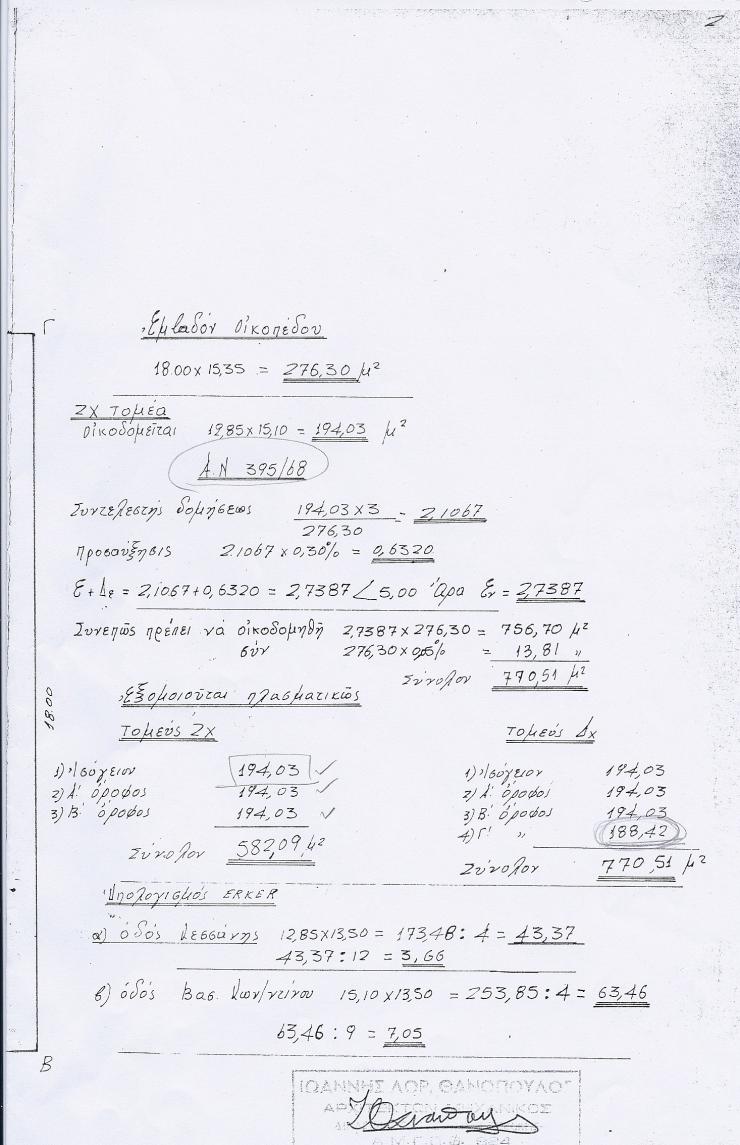 2
Γ
Ἐμβαδόν οἰκοπέδου
18.00 x 15,35 = 276,30 μ²
ΖΧ τομέα
οἰκοδομεῖται 12,85 x 15,10 = 194,03 μ²
Α.Ν 395/68
Συντελεστής δομήσεως 194,03 x 3 / 276,30 = 2,1067
Προσαύξησις 2.1067 x 0,30% = 0,6320
= 2,1067 + 0,6320 = 2,7387 < 5,00 Ἄρα = 2,7387
Συνεπῶς πρέπει νά οἰκοδομηθῆ 2,7387 x 276,30 = 756,70 μ²
σύν 276,30 x = 13,81 "
Σύνολον 770,51 μ²
18.00
Ἐξομοιοῦται πλασματικῶς
Τομεύς ΖΧ
1) Ἰσόγειον 194,03 ✓
2) Α' ὄροφος 194,03 ✓
3) Β' ὄροφος 194,03 ✓
Σύνολον 582,09 μ²
Τομεύς Δχ
1) Ἰσόγειον 194,03
2) Α' ὄροφος 194,03
3) Β' ὄροφος 194,03
4) Γ' " 188,42
Σύνολον 770,51 μ²
Ὑπολογισμός ERKER
α) ὁδός 12,85 x 13,50 = 173,48 : 4 = 43,37
43,37 : 12 = 3,66
β) ὁδός Βασ. Κων/ντίνου 15,10 x 13,50 = 253,85 : 4 = 63,46
63,46 : 9 = 7,05
Β
ΙΩΑΝΝΗΣ ΛΟΡ. ΘΑΝΟΠΟΥΛΟΣ
ΑΡΧΙΤΕΚΤΩΝ ΜΗΧΑΝΙΚΟΣ